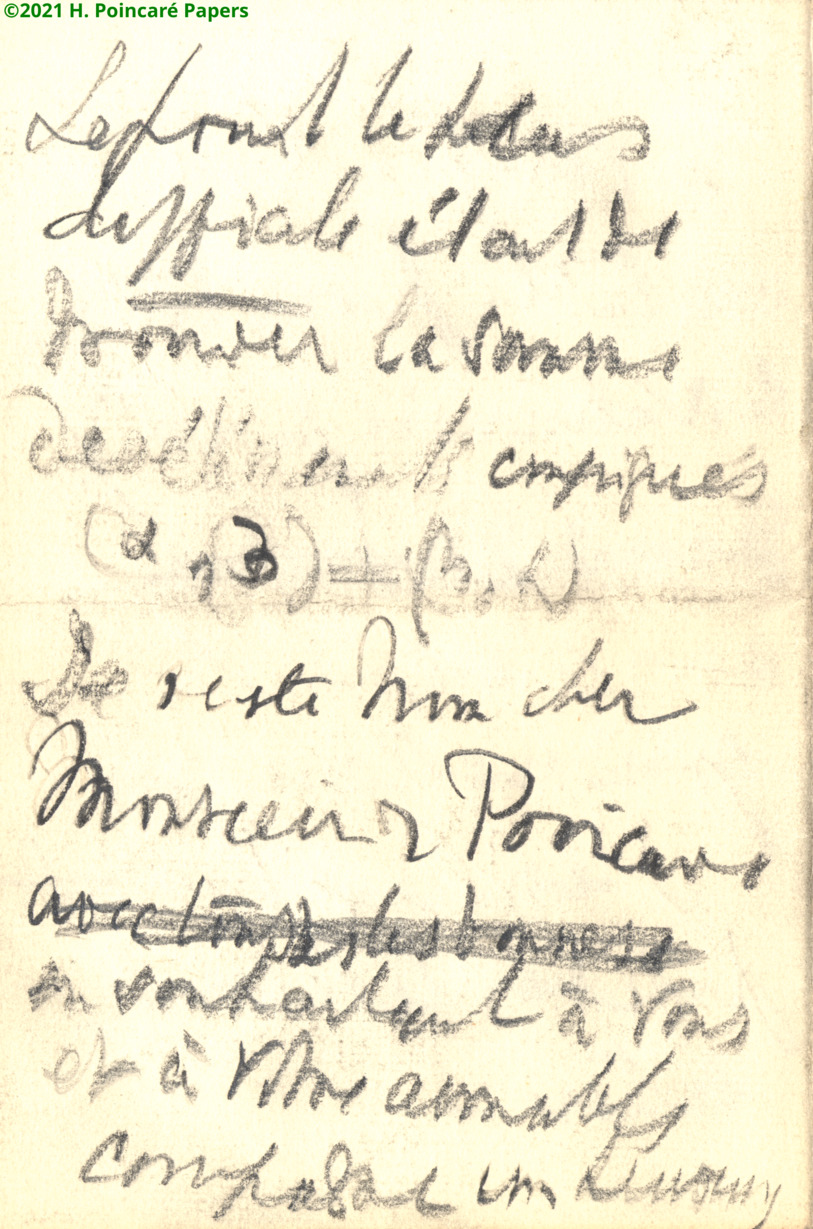 ©2021 H. Poincaré Papers
Le point le plus
difficile étant de
trouver la somme
des éléments compiqués
(α, β) ± (β, α)
Je reste mon cher
Monsieur Poincaré
avec toutes les bonnes
en souhaitant à vous
et à votre aimable
compagne un heureux